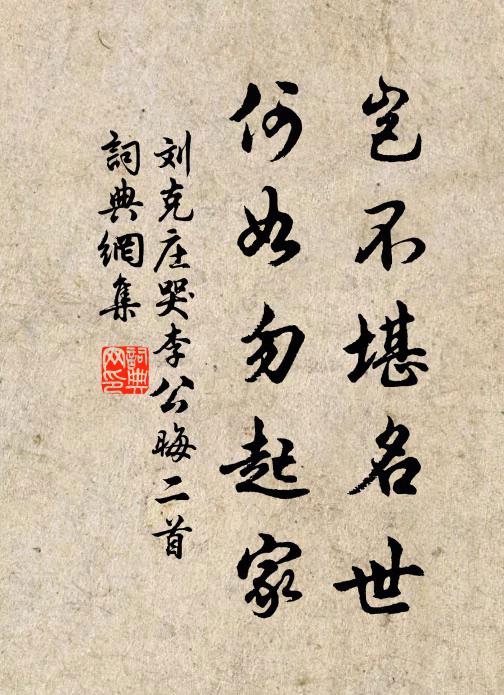 岂不堪名世
何如勿起家
刘克庄哭李公晦二首
詞典網集
詞典
网印